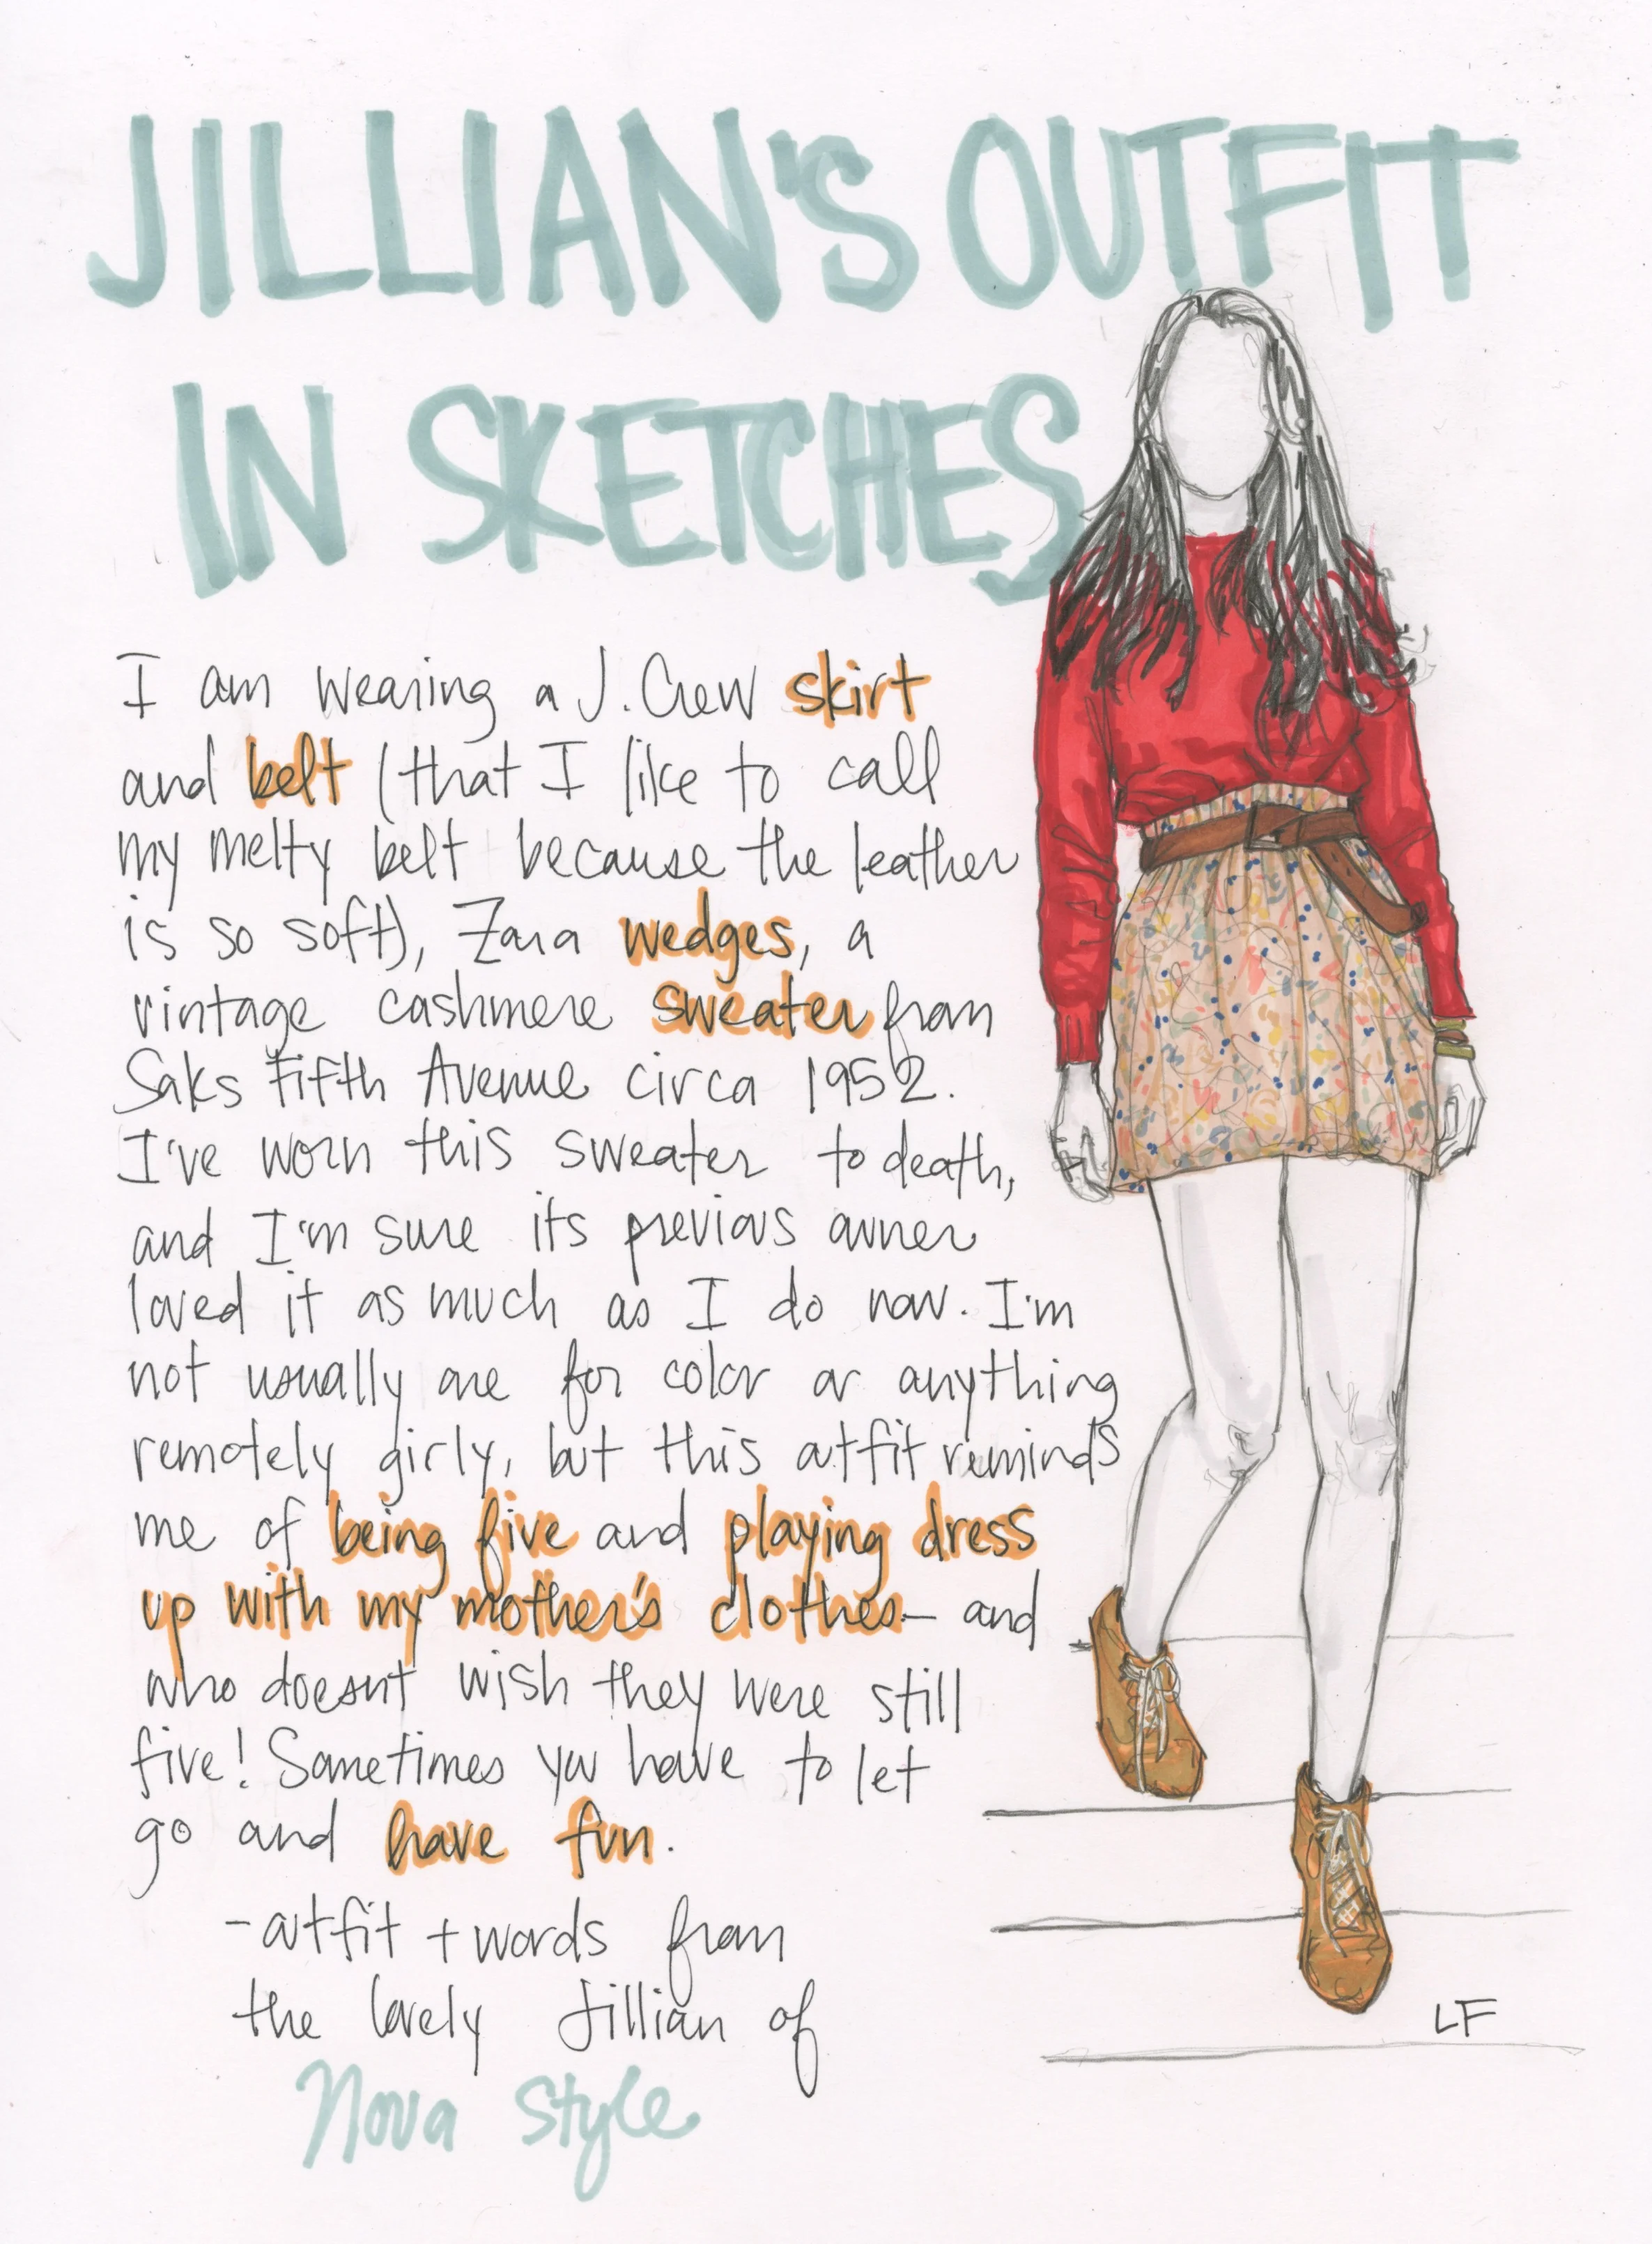 JILLIAN'S OUTFIT
IN SKETCHES
I am wearing a J.Crew skirt
and belt (that I like to call
my melty belt because the leather
is so soft), Zara wedges, a
vintage cashmere sweater from
Saks Fifth Avenue circa 1952.
I've worn this sweater to death,
and I'm sure its previous owner
loved it as much as I do now. I'm
not usually one for color or anything
remotely girly, but this outfit reminds
me of being five and playing dress
up with my mother's clothes— and
who doesnt wish they were still
five! Sometimes you have to let
go and have fun.
-outfit + words from
the lovely Jillian of
Nova Style
LF